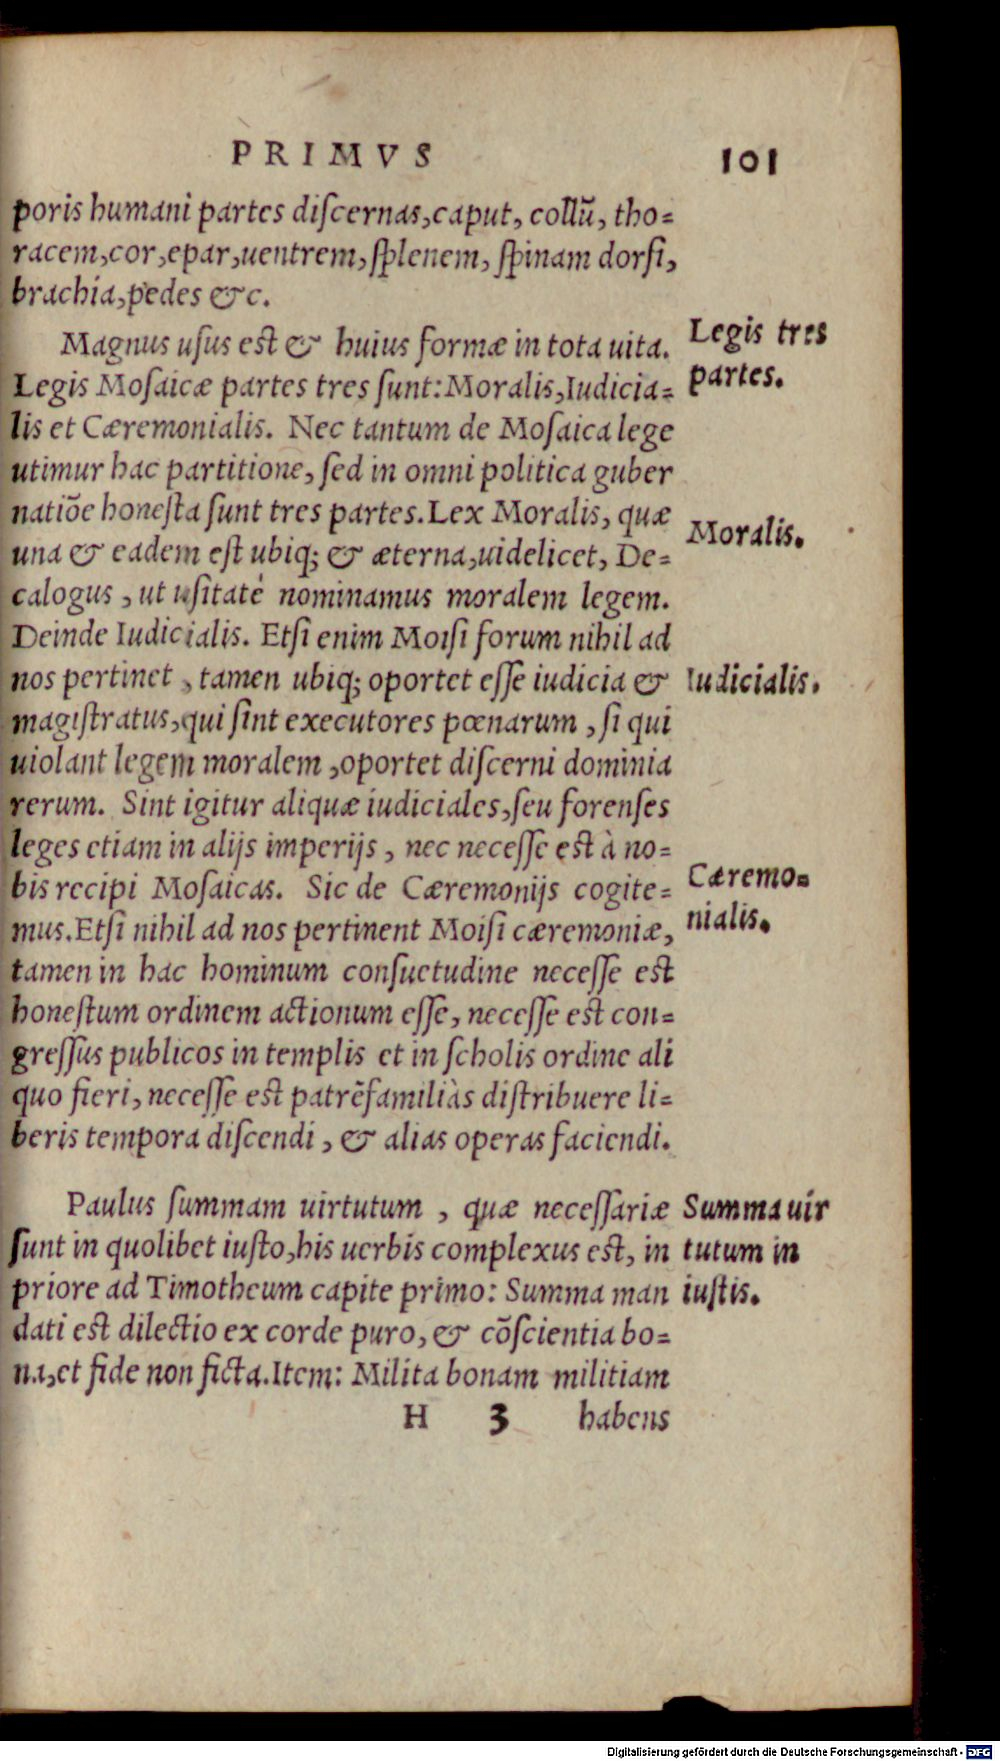 PRIMVS 101
poris humani partes diſcernas, caput, collū, tho⸗
racem, cor, epar, uentrem, ſplenem, ſpinam dorſi,
brachia, pedes &c.
Magnus uſus est & huius formæ in tota uita.
Legis tres
Legis Moſaicæ partes tres ſunt: Moralis, Iudicia⸗
partes.
lis et Cæremonialis. Nec tantum de Moſaica lege
utimur hac partitione, ſed in omni politica guber
natiōe honeſta ſunt tres partes. Lex Moralis, quæ
Moralis.
una & eadem eſt ubiq; & æterna, uidelicet, De⸗
calogus, ut uſitatè nominamus moralem legem.
Deinde Iudicialis. Etſi enim Moiſi forum nihil ad
nos pertinet, tamen ubiq; oportet eſſe iudicia &
Iudicialis.
magiſtratus, qui ſint executores pœnarum, ſi qui
uiolant legem moralem, oportet diſcerni dominia
rerum. Sint igitur aliquæ iudiciales, ſeu forenſes
leges etiam in alijs imperijs, nec neceſſe est à no⸗
bis recipi Moſaicas. Sic de Cæremonijs cogite⸗
Cæremo⸗
mus. Etſi nihil ad nos pertinent Moiſi cæremoniæ,
nialis.
tamen in hac hominum conſuetudine neceſſe est
honeſtum ordinem actionum eſſe, neceſſe est con⸗
greſſus publicos in templis et in ſcholis ordine ali
quo fieri, neceſſe est patrēfamiliàs diſtribuere li⸗
beris tempora diſcendi, & alias operas faciendi.
Paulus ſummam uirtutum, quæ neceſſariæ
Summa uir
ſunt in quolibet iuſto, his uerbis complexus est, in
tutum in
priore ad Timotheum capite primo: Summa man
iuſtis.
dati est dilectio ex corde puro, & cōſcientia bo⸗
na, et fide non ficta. Item: Milita bonam militiam
H 3 habens
Digitalisierung gefördert durch die Deutsche Forschungsgemeinschaft - DFG